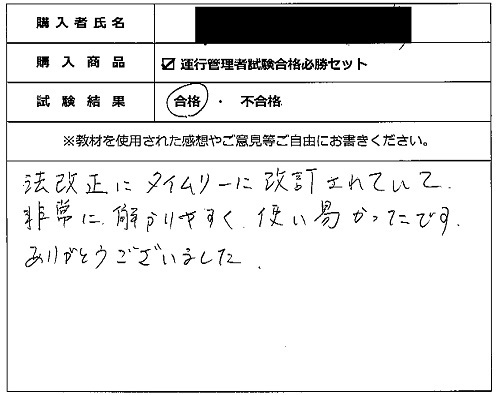 購入者氏名
購入商品 ☑ 運行管理者試験合格必勝セット
試験結果 合格 ・ 不合格
※教材を使用された感想やご意見等ご自由にお書きください。
法改正にタイムリーに改訂されていて、
非常に、解かりやすく、使い易かったです。
ありがとうございました。